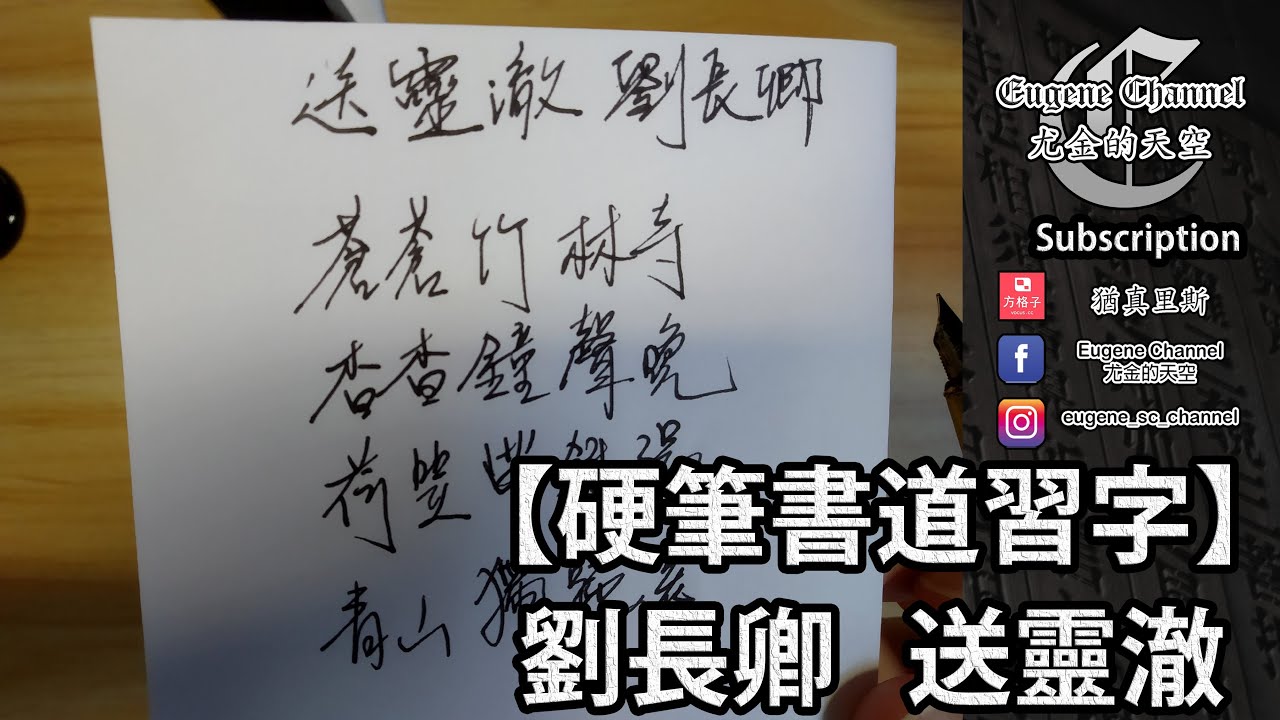 送靈澈 劉長卿
蒼蒼竹林寺
杳杳鐘聲晚
荷笠
青山獨
Eugene Channel
尤金的天空
Subscription
方格子
VOCUS.CC
猶真里斯
Eugene Channel
尤金的天空
eugene_sc_channel
【硬筆書道習字】
劉長卿 送靈澈